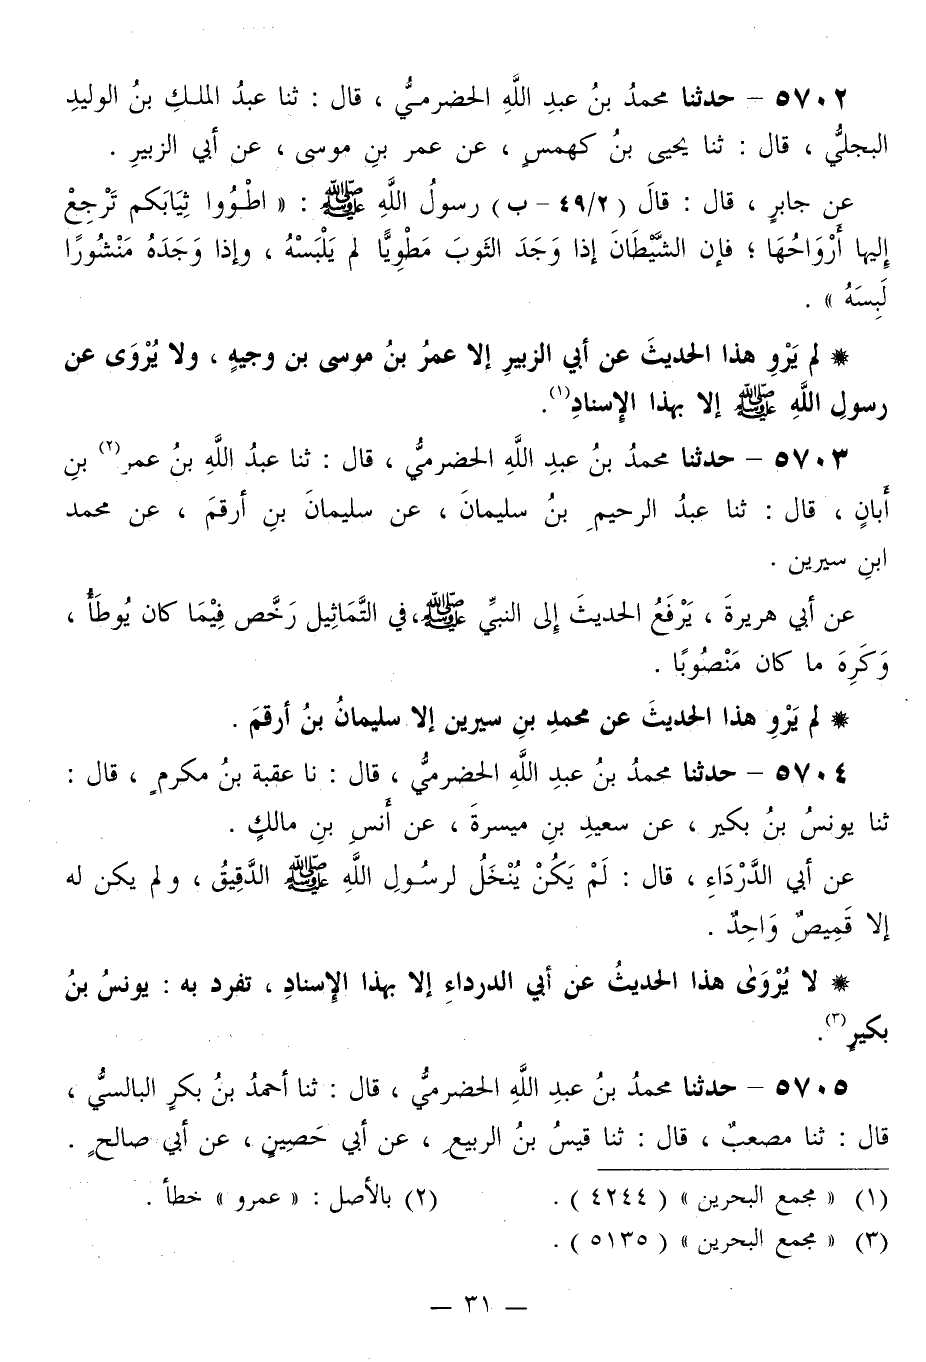 ٥٧٠٢ – حدثنا محمدُ بنُ عبدِ اللَّهِ الحضرميُّ ، قال : ثنا عبدُ الملكِ بنُ الوليدِ
البجليُّ ، قال : ثنا يحيى بنُ كهمسٍ ، عن عمر بنِ موسى ، عن أبي الزبيرِ .
عن جابرٍ ، قال : قالَ ( ٤٩/٢ – ب ) رسولُ اللَّهِ ﷺ : « اطْوُوا ثِيَابَكم تَرْجِعْ
إليها أَرْوَاحُهَا ؛ فإن الشَّيْطَانَ إذا وَجَدَ الثوبَ مَطْوِيًّا لم يَلْبَسْهُ ، وإذا وَجَدَهُ مَنْشُورًا
لَبِسَهُ » .
* لم يَرْوِ هذا الحديثَ عن أبي الزبيرِ إلا عمرُ بنُ موسى بن وجيهٍ ، ولا يُرْوَى عن
رسولِ اللَّهِ ﷺ إلا بهذا الإِسنادِ(١).
٥٧٠٣ – حدثنا محمدُ بنُ عبدِ اللَّهِ الحضرميُّ ، قال : ثنا عبدُ اللَّهِ بنُ عمر(٢) بنِ
أَبانٍ ، قال : ثنا عبدُ الرحيمِ بنُ سليمانَ ، عن سليمانَ بنِ أرقمَ ، عن محمد
ابنِ سيرين .
عن أبي هريرةَ ، يَرْفَعُ الحديثَ إلى النبيِّ ﷺ، في التَّمَاثِيل رَخَّص فِيْمَا كان يُوطَأُ ،
وَكَرِهَ ما كان مَنْصُوبًا .
* لم يَرْوِ هذا الحديثَ عن محمدِ بنِ سيرين إلا سليمانُ بنُ أرقمَ .
٥٧٠٤ – حدثنا محمدُ بنُ عبدِ اللَّهِ الحضرميُّ ، قال : نا عقبة بنُ مكرمٍ ، قال :
ثنا يونسُ بنُ بكير ، عن سعيدِ بنِ ميسرةَ ، عن أَنسِ بنِ مالكٍ .
عن أبي الدَّرْدَاءِ ، قال : لَمْ يَكُنْ يُنْخَلُ لرسُولِ اللَّهِ ﷺ الدَّقِيقُ ، ولم يكن له
إلا قَمِيصٌ وَاحِدٌ .
* لا يُرْوَىٰ هذا الحديثُ عن أبي الدرداءِ إلا بهذا الإِسنادِ ، تفرد به : يونسُ بنُ
بكيرٍ(٣).
٥٧٠٥ – حدثنا محمدُ بنُ عبدِ اللَّهِ الحضرميُّ ، قال : ثنا أحمدُ بنُ بكرٍ البالسيُّ ،
قال : ثنا مصعبٌ ، قال : ثنا قيسُ بنُ الربيعِ ، عن أبي حَصِينٍ ، عن أبي صالحٍ .
(١) « مجمع البحرين » ( ٤٢٤٤ ) . (٢) بالأصل : « عمرو » خطأ .
(٣) « مجمع البحرين » ( ٥١٣٥ ) .
— ٣١ —